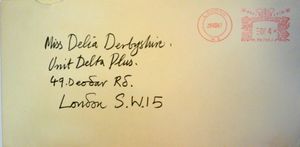 Miss Delia Derbyshire.
Unit Delta Plus.
49. Deodar Rd.
London S.W.15